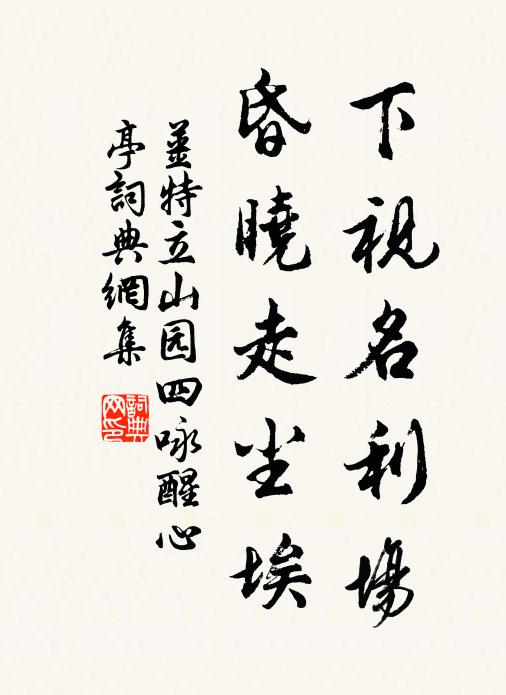 下视名利場
昏曉走尘埃
姜特立山园四咏醒心
亭詞典網集
詞典
网印